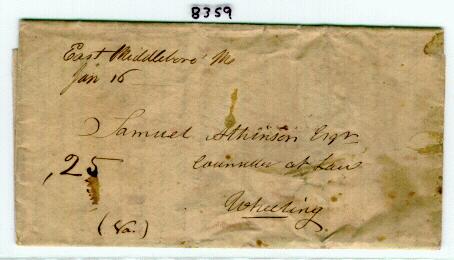 8359
East Middleboro' Ms
Jan 16
Samuel Atkinson Esqr
Counseller at Law
,25
Wheeling
(Va.)